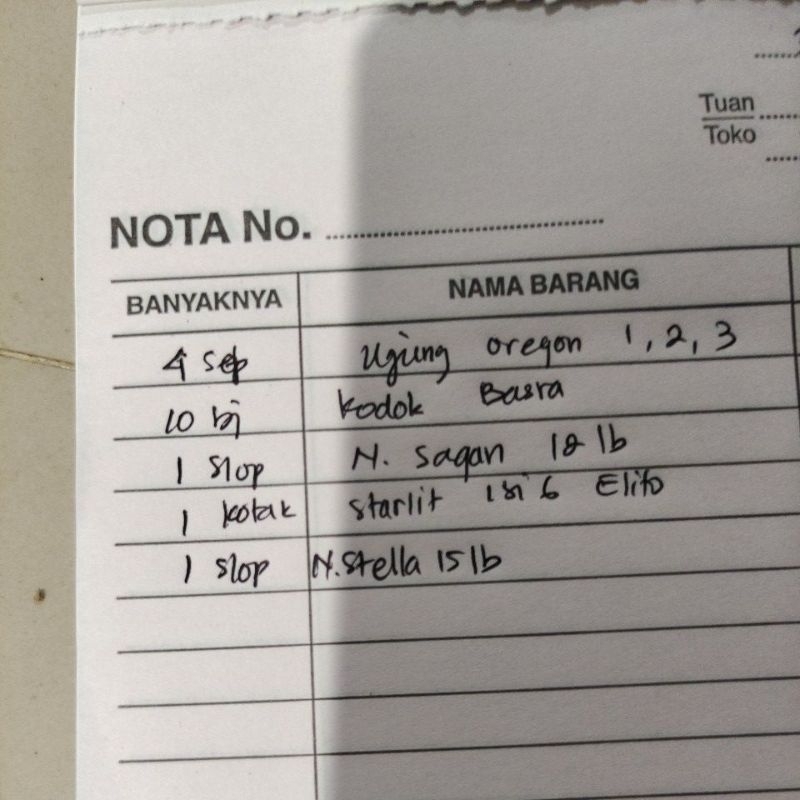 Tuan
Toko
NOTA No.
BANYAKNYA NAMA BARANG
4 Sep Ujung oregon 1, 2, 3
10 bj kodok Basra
1 Slop N. Sagan 12 lb
1 kotak starlit isi 6 Elito
1 slop N. Stella 15 lb